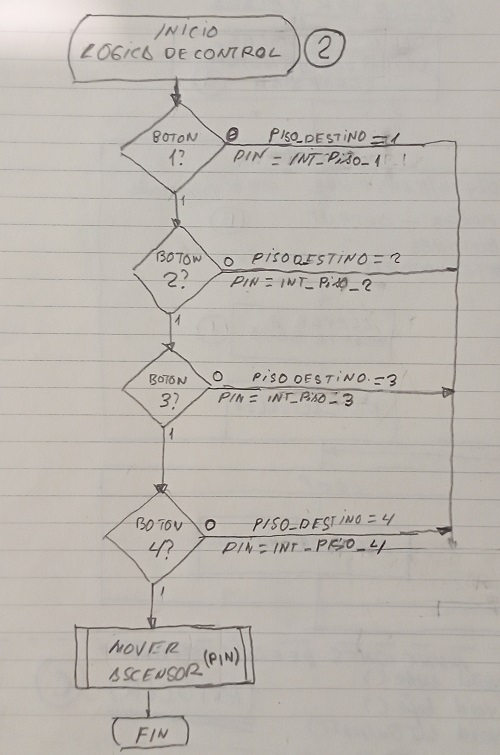 INICIO
LOGICA DE CONTROL
2
BOTON
1?
0 PISO_DESTINO = 1
PIN = INT_PISO_1
1
BOTON
2?
0 PISO DESTINO = 2
PIN = INT_PISO_2
1
BOTON
3?
0 PISO DESTINO. = 3
PIN = INT_PISO_3
1
BOTON
4?
0 PISO_DESTINO = 4
PIN = INT_PISO_4
1
MOVER
ASCENSOR (PIN)
FIN